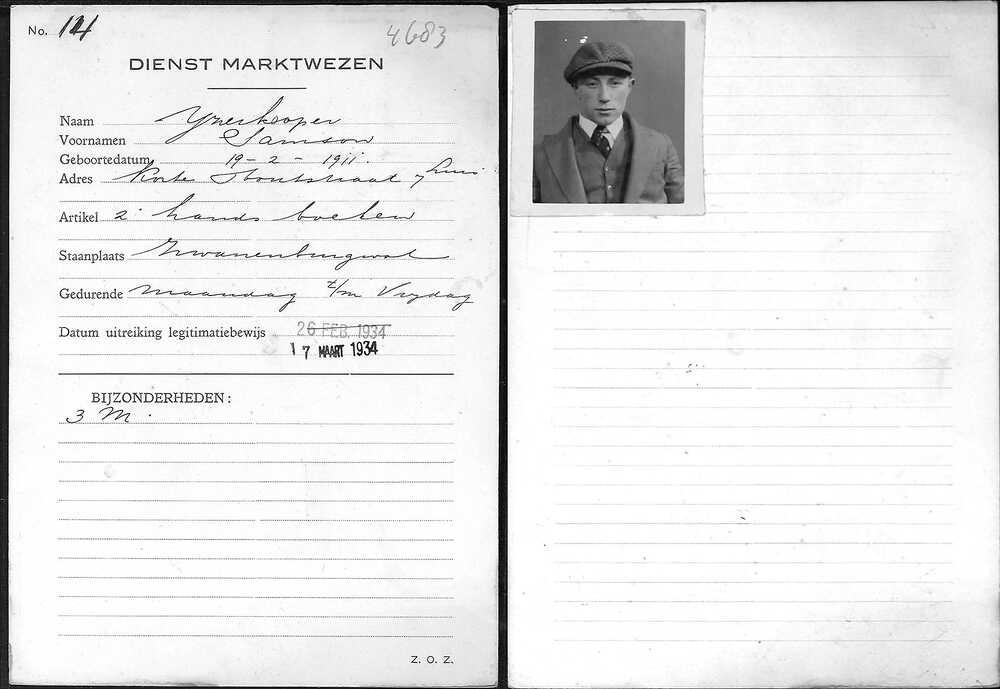 No. 14
4683
DIENST MARKTWEZEN
Naam Yzerkooper
Voornamen Samson
Geboortedatum 19-2-1911.
Adres Korte Houtstraat
Artikel 2e hands boeken
Staanplaats Zwanenburgwal
Gedurende Maandag t/m Vrydag
Datum uitreiking legitimatiebewijs 26 FEB. 1934
17 MAART 1934
BIJZONDERHEDEN:
3 M.
Z. O. Z.